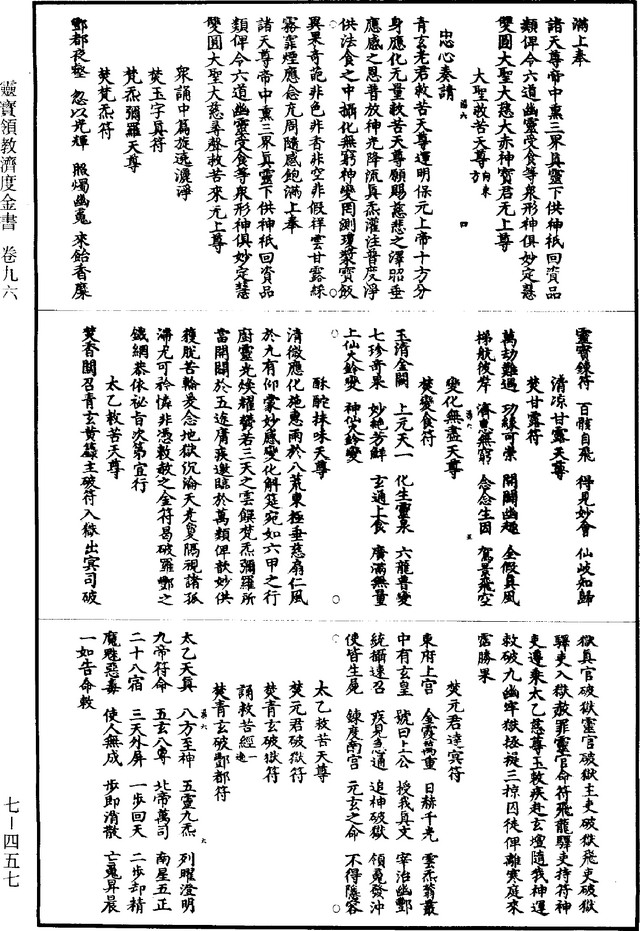 靈寶領教濟度金書　卷九六
七－四五七
滿上奉
諸天尊帝中熏三界真靈下供神祇回資品
類俾今六道幽靈受食等衆形神俱妙定慧
雙圓大聖大慈大赤神寶君元上尊
大聖救苦天尊
向東方
四
忠心奏請
青玄老君救苦天尊運明保元上帝十方分
身應化元量救苦天尊願賜慈悲之澤昭垂
應感之恩普放神光降流真炁灌注普度淨
供法食之中攝化無窮神變罔測瓊漿寶飯
異果奇葩非色非香非空非假祥雲甘露綵
霧霏煙應念充周隨感飽滿上奉
諸天尊帝中熏三界真靈下供神祇回資品
類俾今六道幽靈受食等衆形神俱妙定慧
雙圓大聖大慈尋聲救苦來元上尊
衆誦中篇旋遶灑淨
焚玉字真符
梵炁彌羅天尊
焚梵炁符
酆都夜壑　忽以光輝　服燭幽冤　來飴香糜
靈寶鍊符　百骸自飛　得見妙會　仙岐知歸
清涼甘露天尊
焚甘露符
萬劫難遇　功緣可崇　開闢幽趣　全假真風
梯航彼岸　濟惠無窮　念念生因　駕景飛空
五
變化無盡天尊
焚變食符
玉清金闕　上元天一　化生靈泉　六龍普變
七珍奇果　妙絶芳鮮　玄通上食　廣滿無量
上仙大齡變　神仙大齡變
酥酡抹味天尊
清微應化施惠雨於八荒東極垂慈扇仁風
於九有仰蒙妙感變化解筵宛如六甲之行
廚靈光煥耀欝若三天之雲饌梵炁彌羅所
當開闢於五逵庸疾邀賒於萬類俾歆妙供
獲脫苦輪爰念地獄沉淪天光敻隔視諸孤
滯尤可矜憐非憑敕赦之金符曷破羅酆之
鐵網恭依祕旨次第宣行
太乙救苦天尊
焚香關召青玄黄籙主破符入獄出冥司破
獄真官破獄靈官破獄主吏破獄飛吏破獄
驛吏入獄赦罪靈官命符飛龍驛吏持符神
吏遵乘太乙慈尊玉敕疾赴玄壇隨我神運
救破九幽牢獄拯援三掠囚徒俾離寒庭來
霑勝果
焚元君達冥符
東府上宮　金霞萬重　日赫千光　雲炁蓊叢
中有玄皇　號曰上公　授我真文　宰治幽酆
統攝速召　疾見悳通　追神破獄　領冤發沖
使皆生晃　鍊度南宮　元玄之命　不得隱容
太乙救苦天尊
焚元君破獄符
焚青玄破獄符
誦救苦經一遍
焚青玄破酆都符
六
太乙天真　八方至神　五靈九炁　列曜澄明
九帝符命　五玄八尊　北帝萬司　南星五正
二十八宿　三天外屏　一步回天　二步却精
魔魁惡毒　使人無成　步即消散　亡冤昇晨
一如告命敕